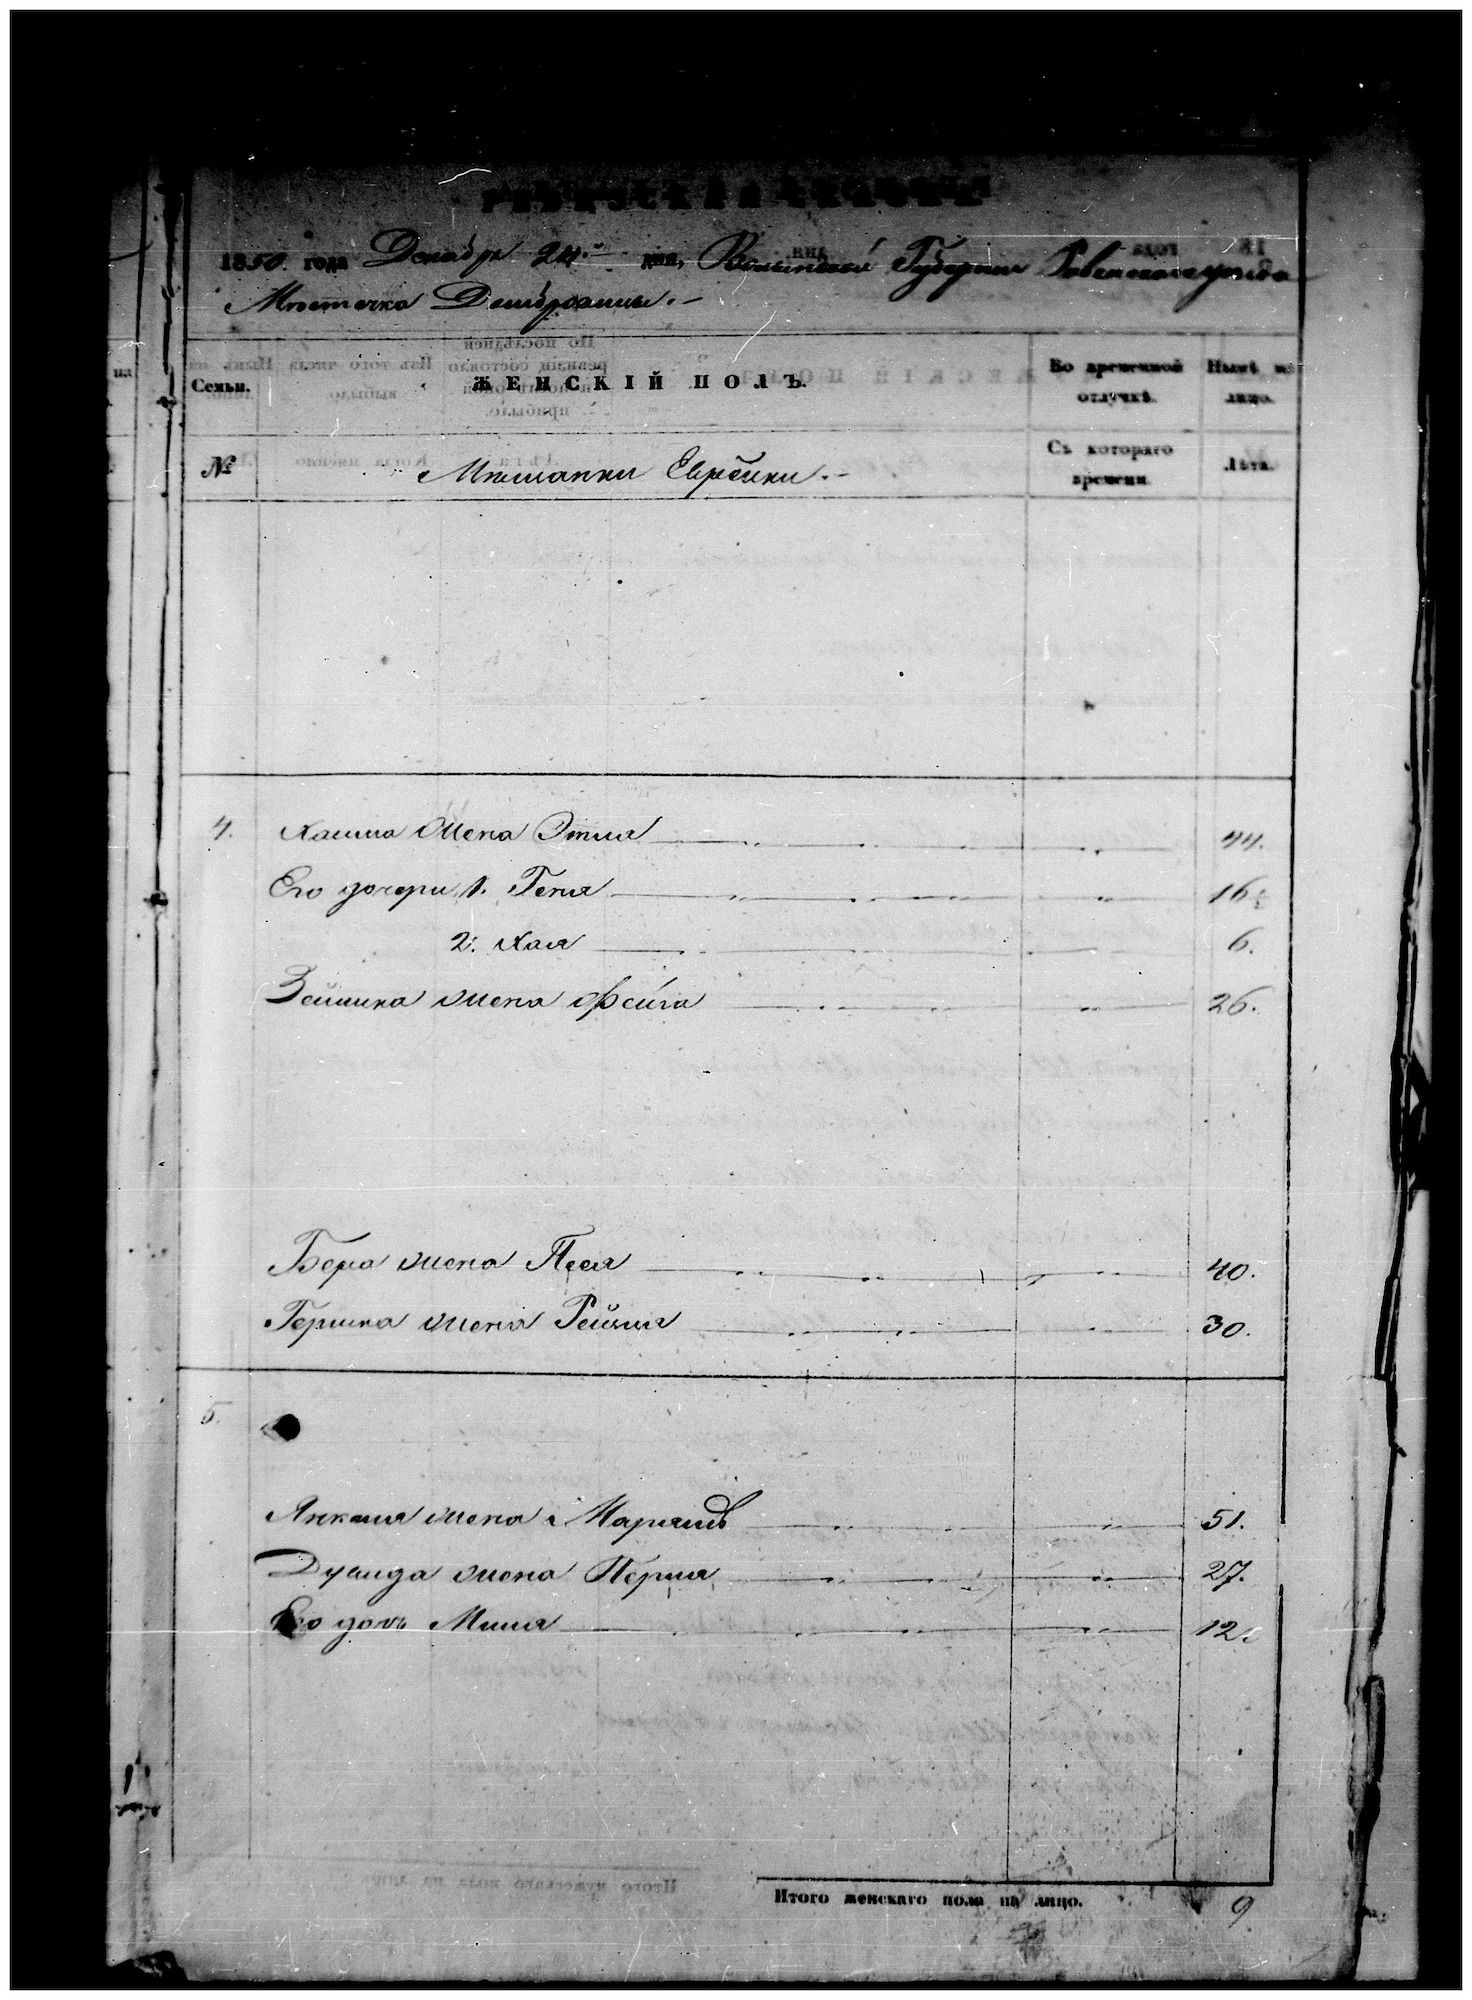 РЕВИЗСКАЯ СКАЗКА
1850. года Декабря 24го дня, Волынской Губернии Ровенского уезда
Местечка Домбровицы.
Семьи.
ЖЕНСКІЙ ПОЛЪ.
Во временной отлучкѣ.
Нынѣ на лицо.
№
Мѣщанки Еврейки.
Съ котораго времени.
Лѣта.
4. Хаима жена Этля 44.
Его дочери 1. Геня 16
2. Хая 6.
Зейлика жена Фейга 26.
Бера жена Песя 40.
Гершка жена Рейзля 30.
5.
Янкеля жена Марьямъ 51.
Дувида жена Перля 27.
Его дочь Миля 12
Итого женскаго пола на лицо. 9